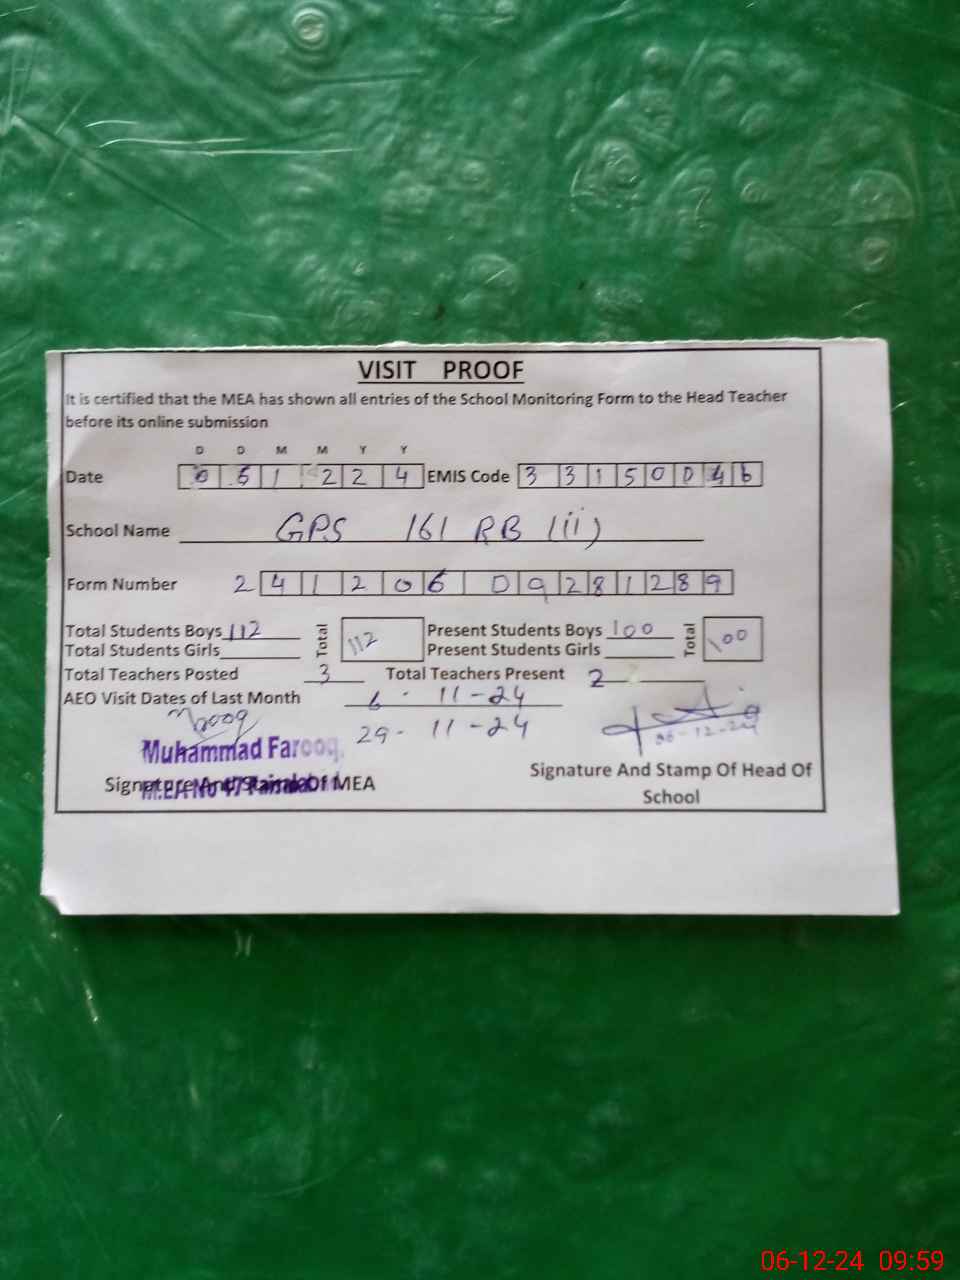 VISIT PROOF
It is certified that the MEA has shown all entries of the School Monitoring Form to the Head Teacher
before its online submission
D D M M Y Y
Date 0 6 1 2 2 4 EMIS Code 3 3 1 5 0 0 4 6
School Name GPS 161 RB (ii)
Form Number 2 4 1 2 0 6 0 9 2 8 1 2 8 9
Total Students Boys 112 Total 112 Present Students Boys 100 Total 100
Total Students Girls Present Students Girls
Total Teachers Posted 3 Total Teachers Present 2
AEO Visit Dates of Last Month 6 - 11-24
29 - 11-24
06-12-24
Muhammad Farooq
Signature And Stamp Of MEA
M.E.A No 47 Faisalabad
Signature And Stamp Of Head Of
School
06-12-24 09:59